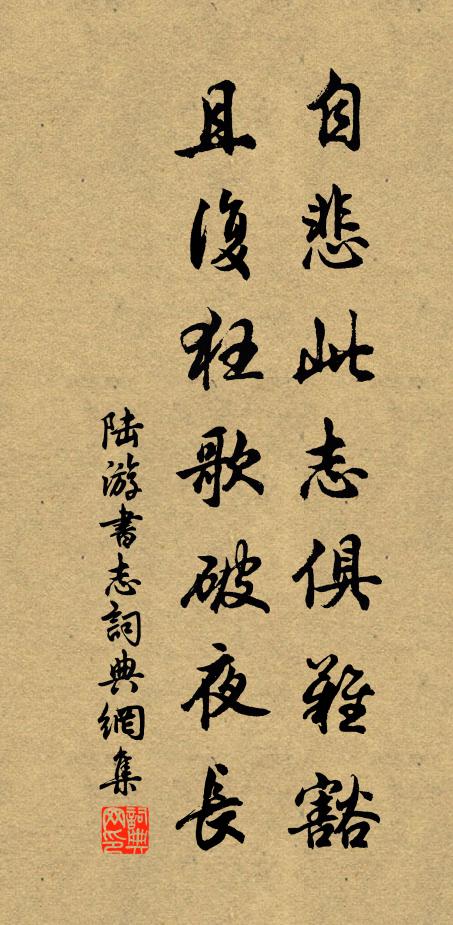 自悲此志俱難豁
且復狂歌破夜長
陆游書志詞典網集
詞典网印